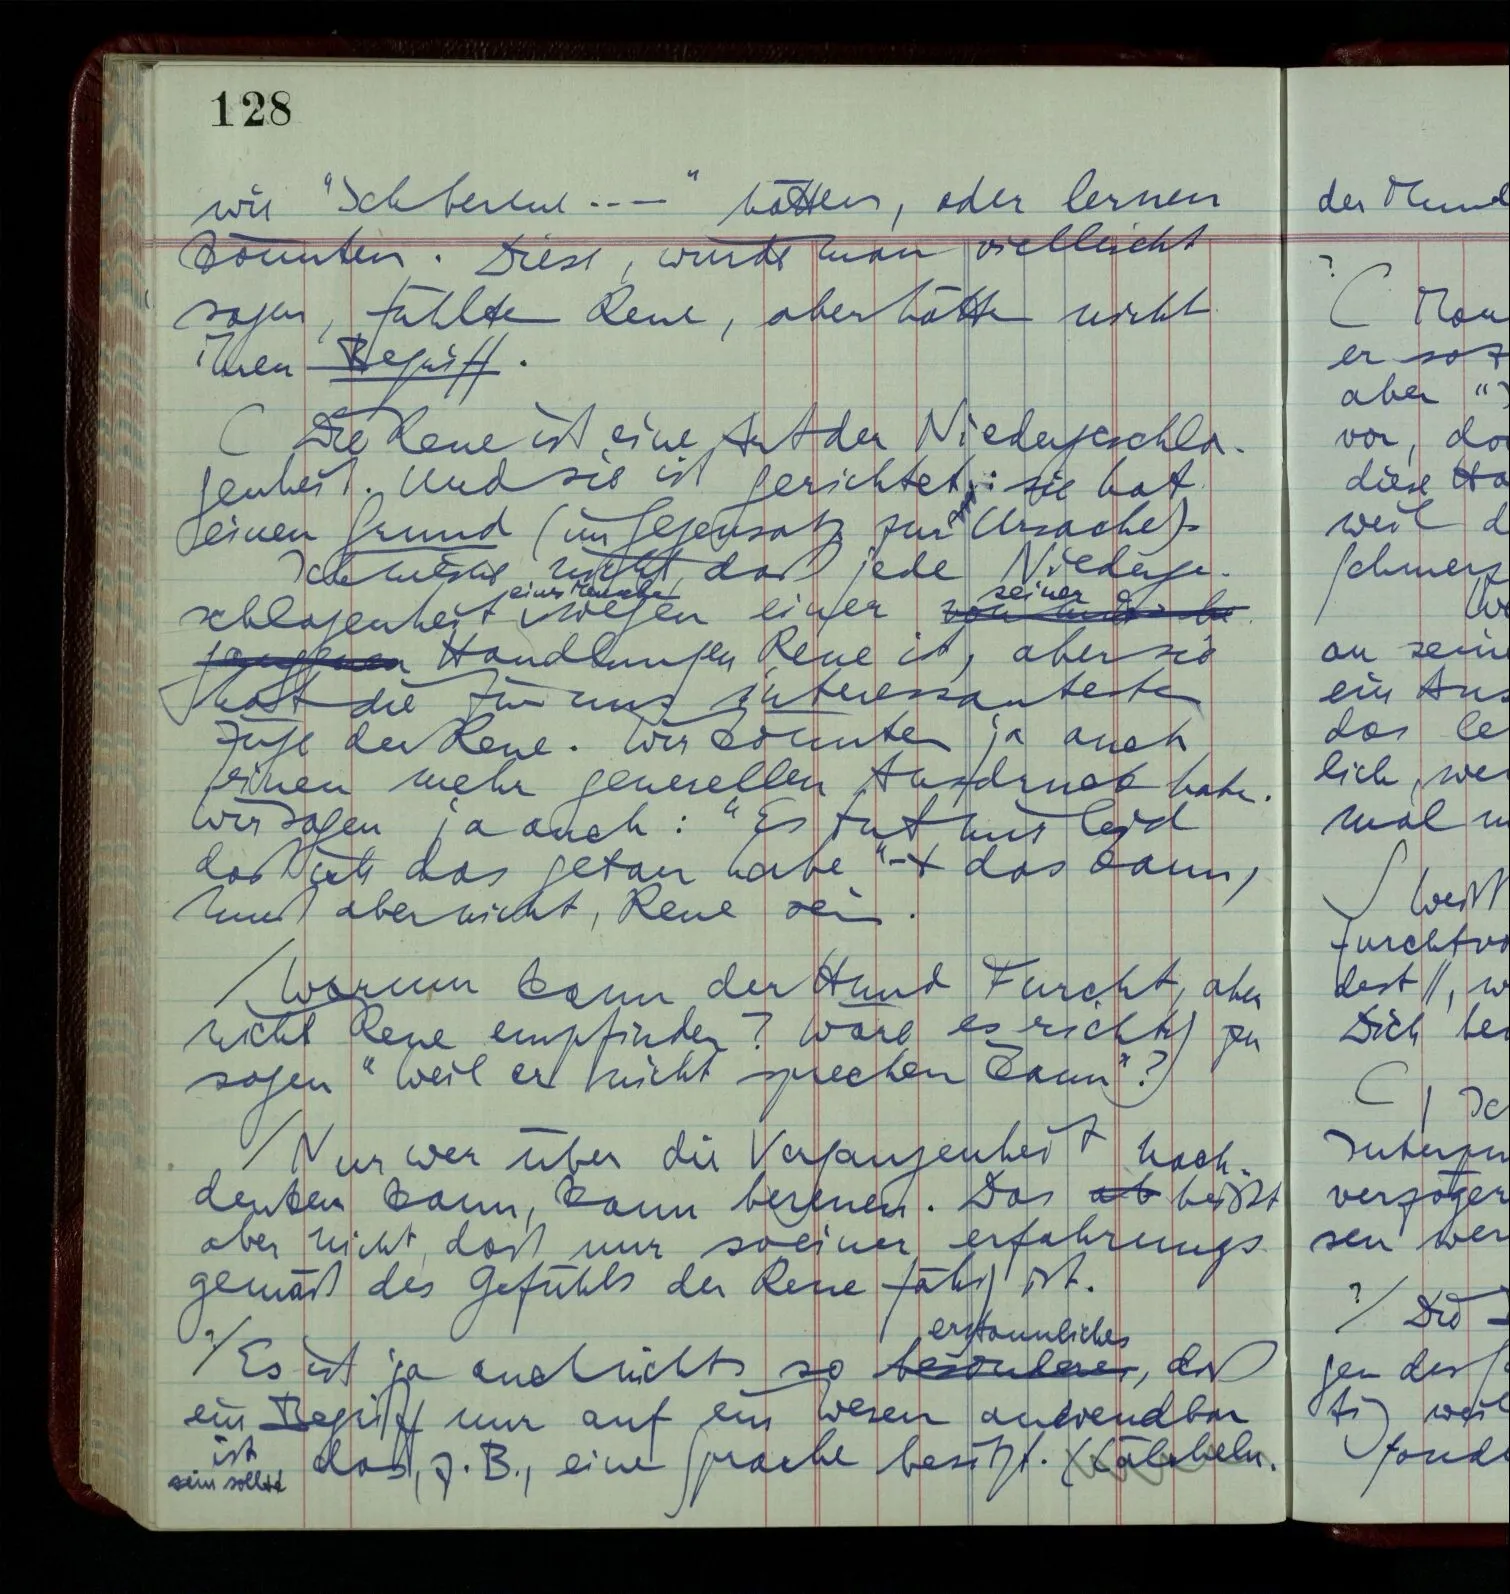 128
wie "Ich bereue ---" hätten, oder lernen
könnten. Diese, würde man vielleicht
sagen, fühlten Reue, aber hätten nicht
ihren Begriff.
( Die Reue ist eine Art der Niedergeschla-
genheit. Und sie ist gerichtet: sie hat
einen Grund (im Gegensatz zur Ursache)
Ich meine nicht, daß jede Niederge-
eines Menschen seiner
schlagenheit wegen einer
Handlungen Reue ist, aber sie
hat die für uns interessantesten
Züge der Reue. Wir könnten ja auch
einen mehr generellen Ausdruck haben.
Wir sagen ja auch: "Es tut mir leid
daß ich das getan habe" – & das kann,
muß aber nicht, Reue sein.
/ Warum kann der Hund Furcht, aber
nicht Reue empfinden? Wäre es richtig zu
sagen "Weil er nicht sprechen kann"?
/ Nur wer über die Vergangenheit nach-
denken kann, kann bereuen. Das heißt
aber nicht, daß nur so einer erfahrungs
gemäß des Gefühls der Reue fähig ist.
erstaunliches
?/ Es ist ja auch nichts so besonderes, daß
ein Begriff nur auf ein Wesen anwendbar
ist das, z.B., eine Sprache besitzt.
sein sollte
der Hund
?
(
er
aber "
vor,
diese
weil d
schmerz
an seine
ein Aus
das le
lich, we
mal
furchtvo
dest //, w
Dich
( /
verzöger
sen wer
?/ Die
gen des
weil